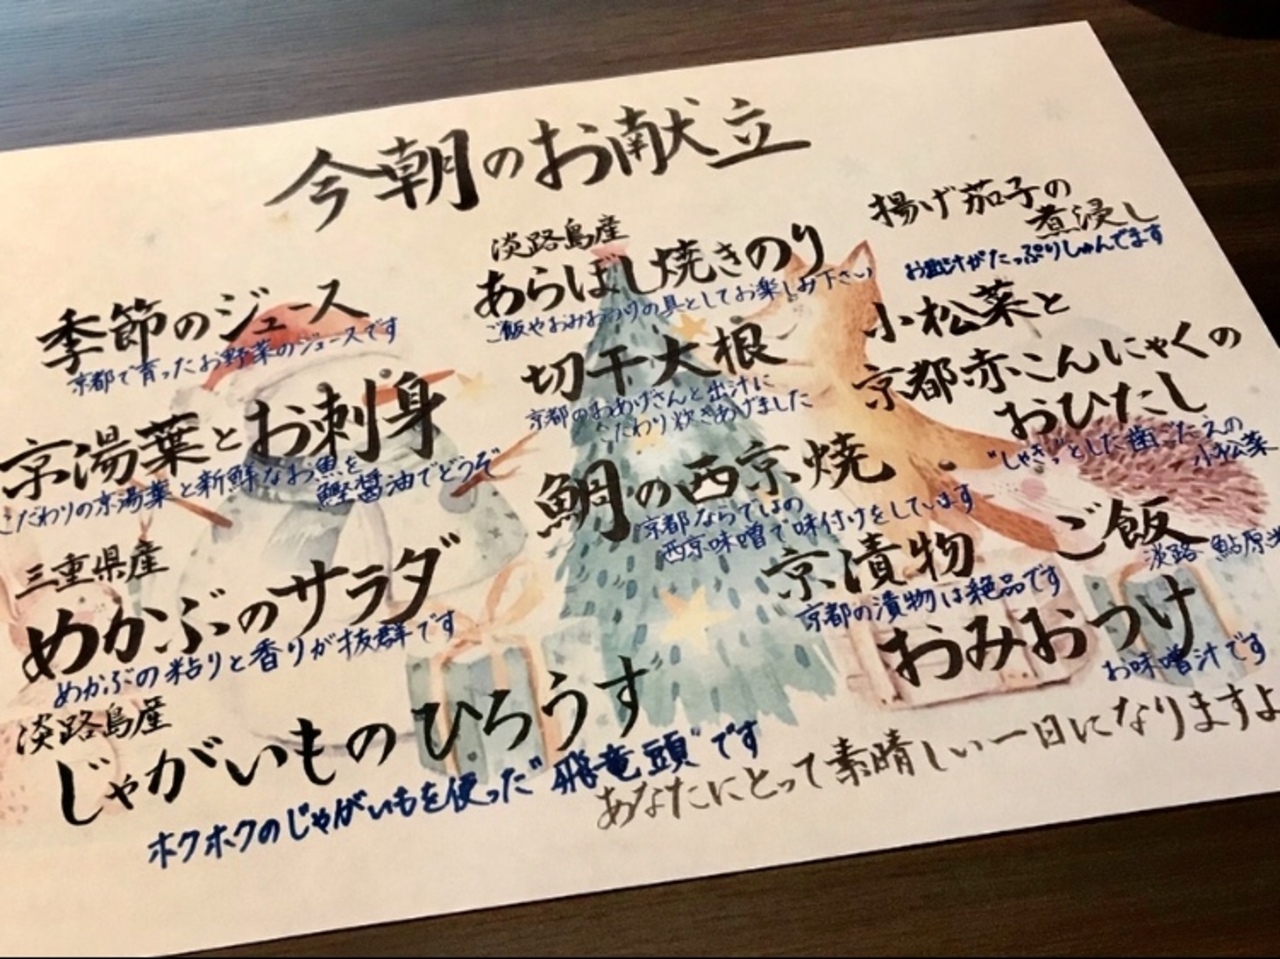 今朝のお献立
季節のジュース
京都で育ったお野菜のジュースです
京湯葉とお刺身
こだわりの京湯葉と新鮮なお魚を
鰹醤油でどうぞ
三重県産
めかぶのサラダ
めかぶの粘りと香りが抜群です
淡路島産
じゃがいものひろうす
ホクホクのじゃがいもを使った"飛竜頭"です
淡路島産
あらばしり焼きのり
ご飯やおみおつけの具としてお楽しみ下さい
切干大根
京都のおあげさんと出汁に
こだわり炊きあげました
鯛の西京焼
京都ならではの
西京味噌で味付けをしています
京漬物
京都の漬物は絶品です
揚げ茄子の
煮浸し
お出汁がたっぷりしゅんでます
小松菜と
京都赤こんにゃくの
おひたし
"しゃきっ"とした歯ごたえの
小松菜
ご飯
淡路 鮎原米
おみおつけ
お味噌汁です
あなたにとって素晴しい一日になりますよ